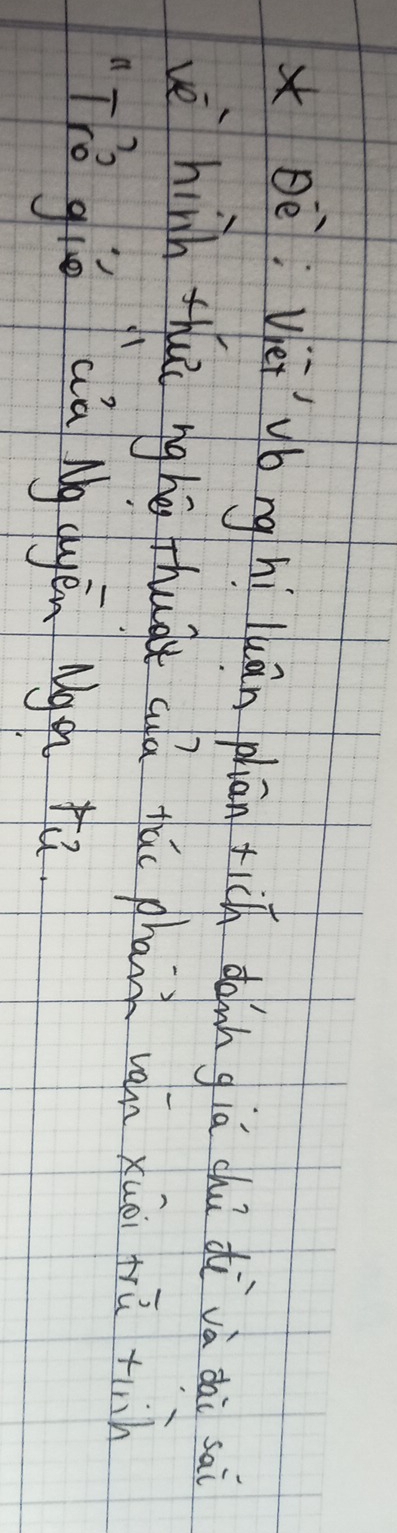 * Đề: Viết vb nghị luận phân tích đánh giá chủ đề và đặc sắc
về hình thức nghệ thuật của tác phẩm văn xuôi trữ tình
"Trở gió" của Nguyễn Ngọc Tử.